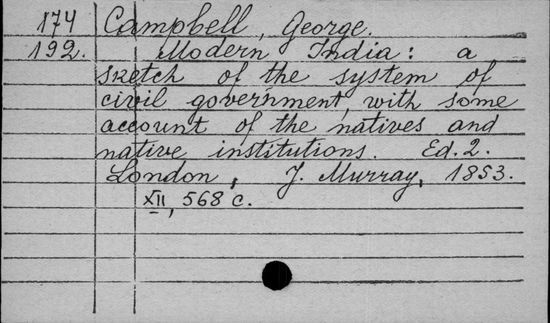 174 Campbell, George.
192. Modern India: a
sketch of the system of
civil government, with some
account of the natives and
native institutions. Ed. 2.
London, J. Murray, 1853.
XII, 568 c.